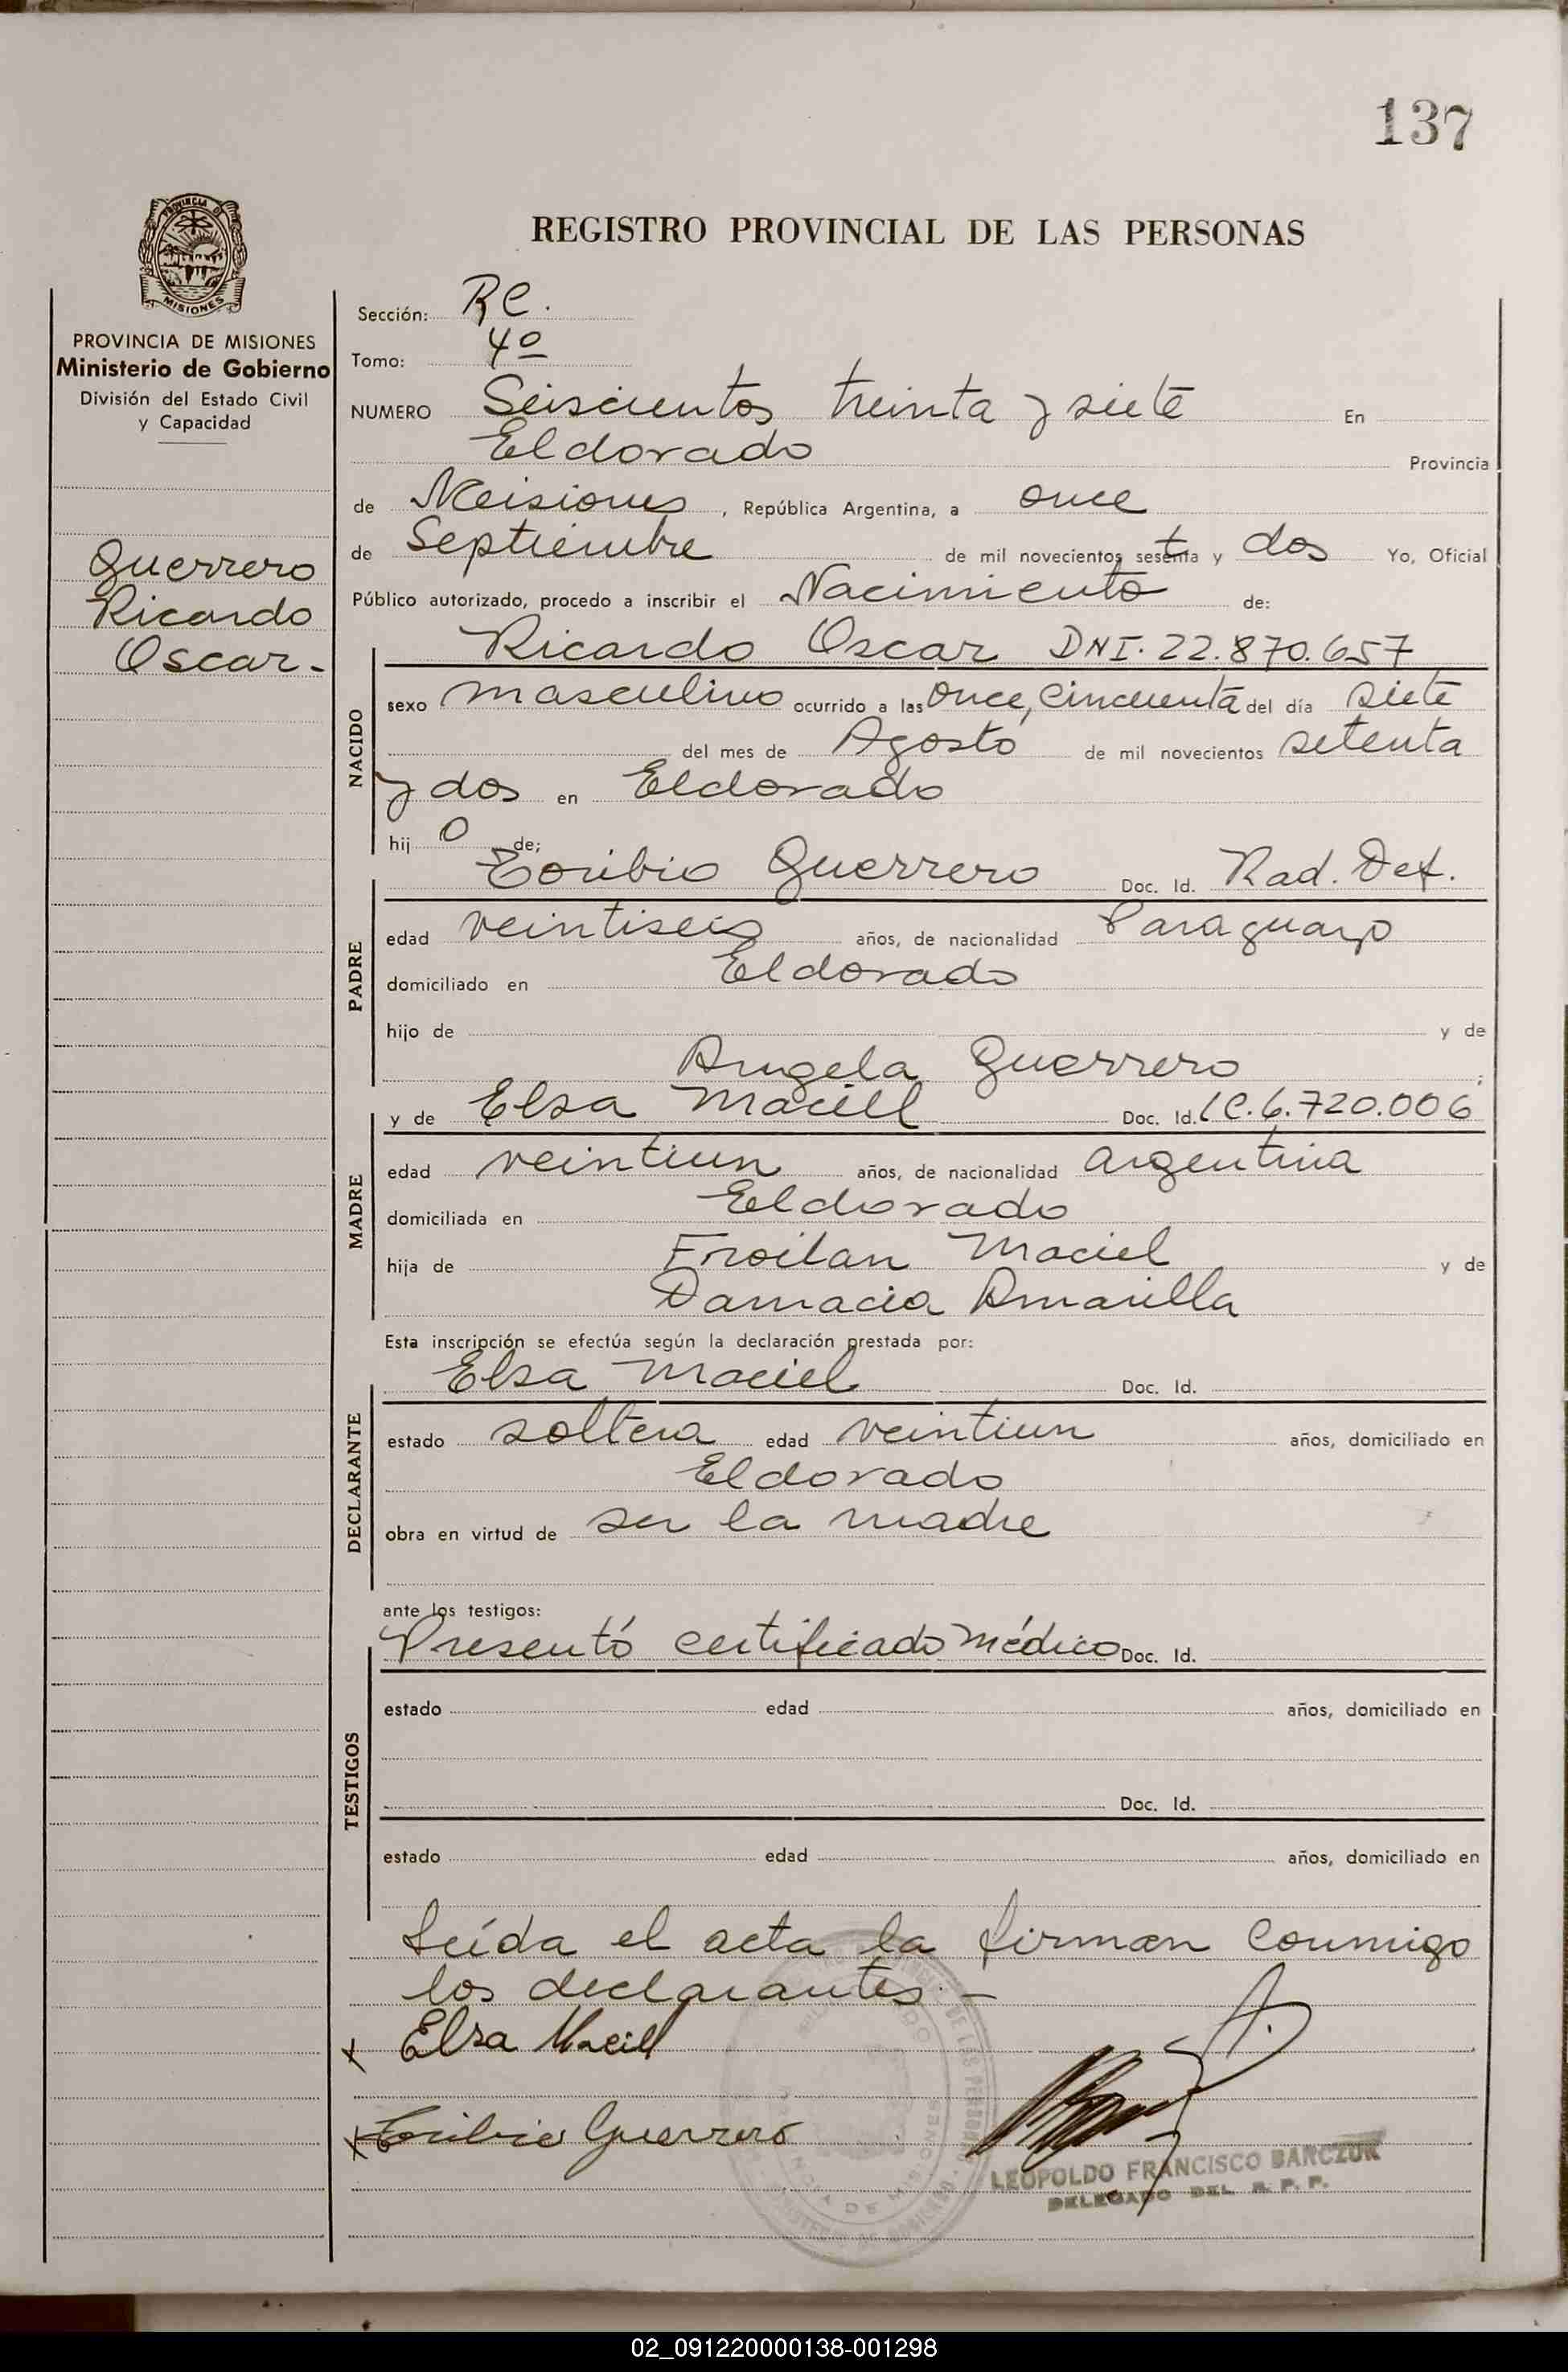 137
REGISTRO PROVINCIAL DE LAS PERSONAS
PROVINCIA DE MISIONES
PROVINCIA DE MISIONES
Ministerio de Gobierno
División del Estado Civil
y Capacidad
Guerrero
Ricardo
Oscar.-
Sección: RC.
Tomo: 4º
NUMERO Seiscientos treinta y siete En
Eldorado Provincia
de Misiones, República Argentina, a once
de Septiembre de mil novecientos setenta y dos Yo, Oficial
Público autorizado, procedo a inscribir el Nacimiento de:
Ricardo Oscar DNI. 22.870.657
NACIDO
sexo masculino ocurrido a las once, cincuenta del día siete
del mes de Agosto de mil novecientos setenta
y dos en Eldorado
hij o de;
PADRE
Toribio Guerrero Doc. Id. Rad. Def.
edad veintiseis años, de nacionalidad Paraguayo
domiciliado en Eldorado
hijo de y de
Angela Guerrero;
MADRE
y de Elsa Maciel Doc. Id. LC. 6.720.006
edad veintiun años, de nacionalidad argentina
domiciliada en Eldorado
hija de Froilan Maciel y de
Damacia Amarilla
Esta inscripción se efectúa según la declaración prestada por:
DECLARANTE
Elsa Maciel Doc. Id.
estado soltera edad veintiun años, domiciliado en
Eldorado
obra en virtud de ser la madre
ante los testigos:
TESTIGOS
Presentó certificado médico Doc. Id.
estado edad años, domiciliado en
Doc. Id.
estado edad años, domiciliado en
Leída el acta la firman conmigo
los declarantes.-
x Elsa Maciel
x Toribio Guerrero
LEOPOLDO FRANCISCO BARCZUK
DELEGADO DEL R. P. P.
02_091220000138-001298